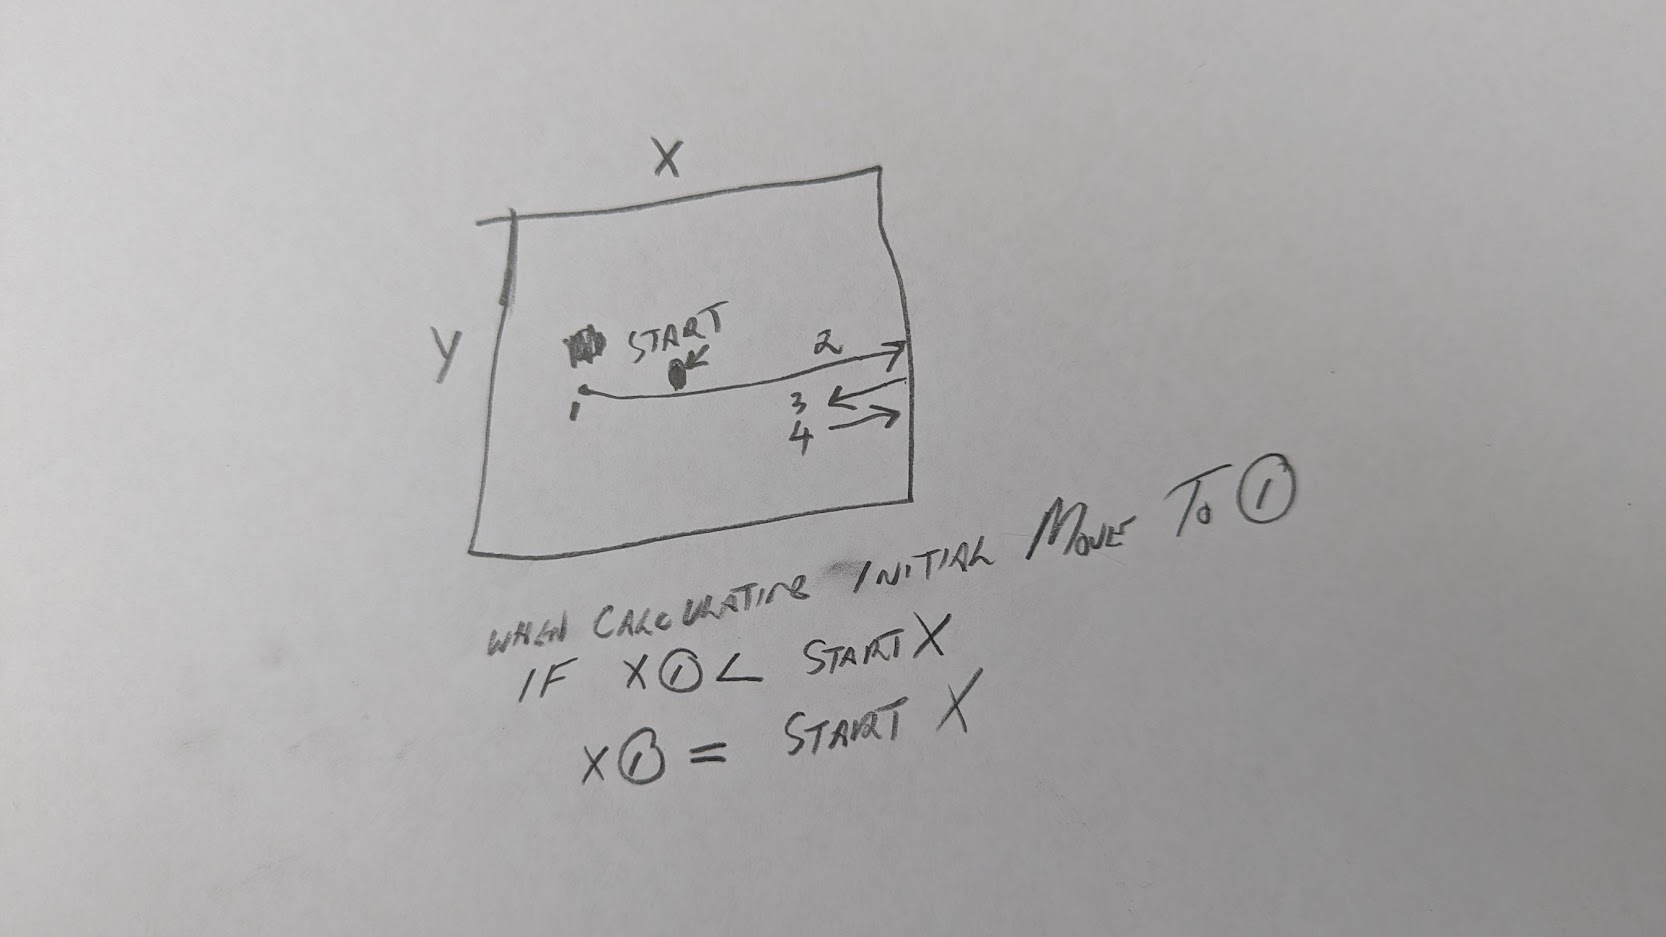 X
Y
START
2
1
3
4
WHEN CALCULATING INITIAL MOVE TO ①
IF X① < START X
X① = START X